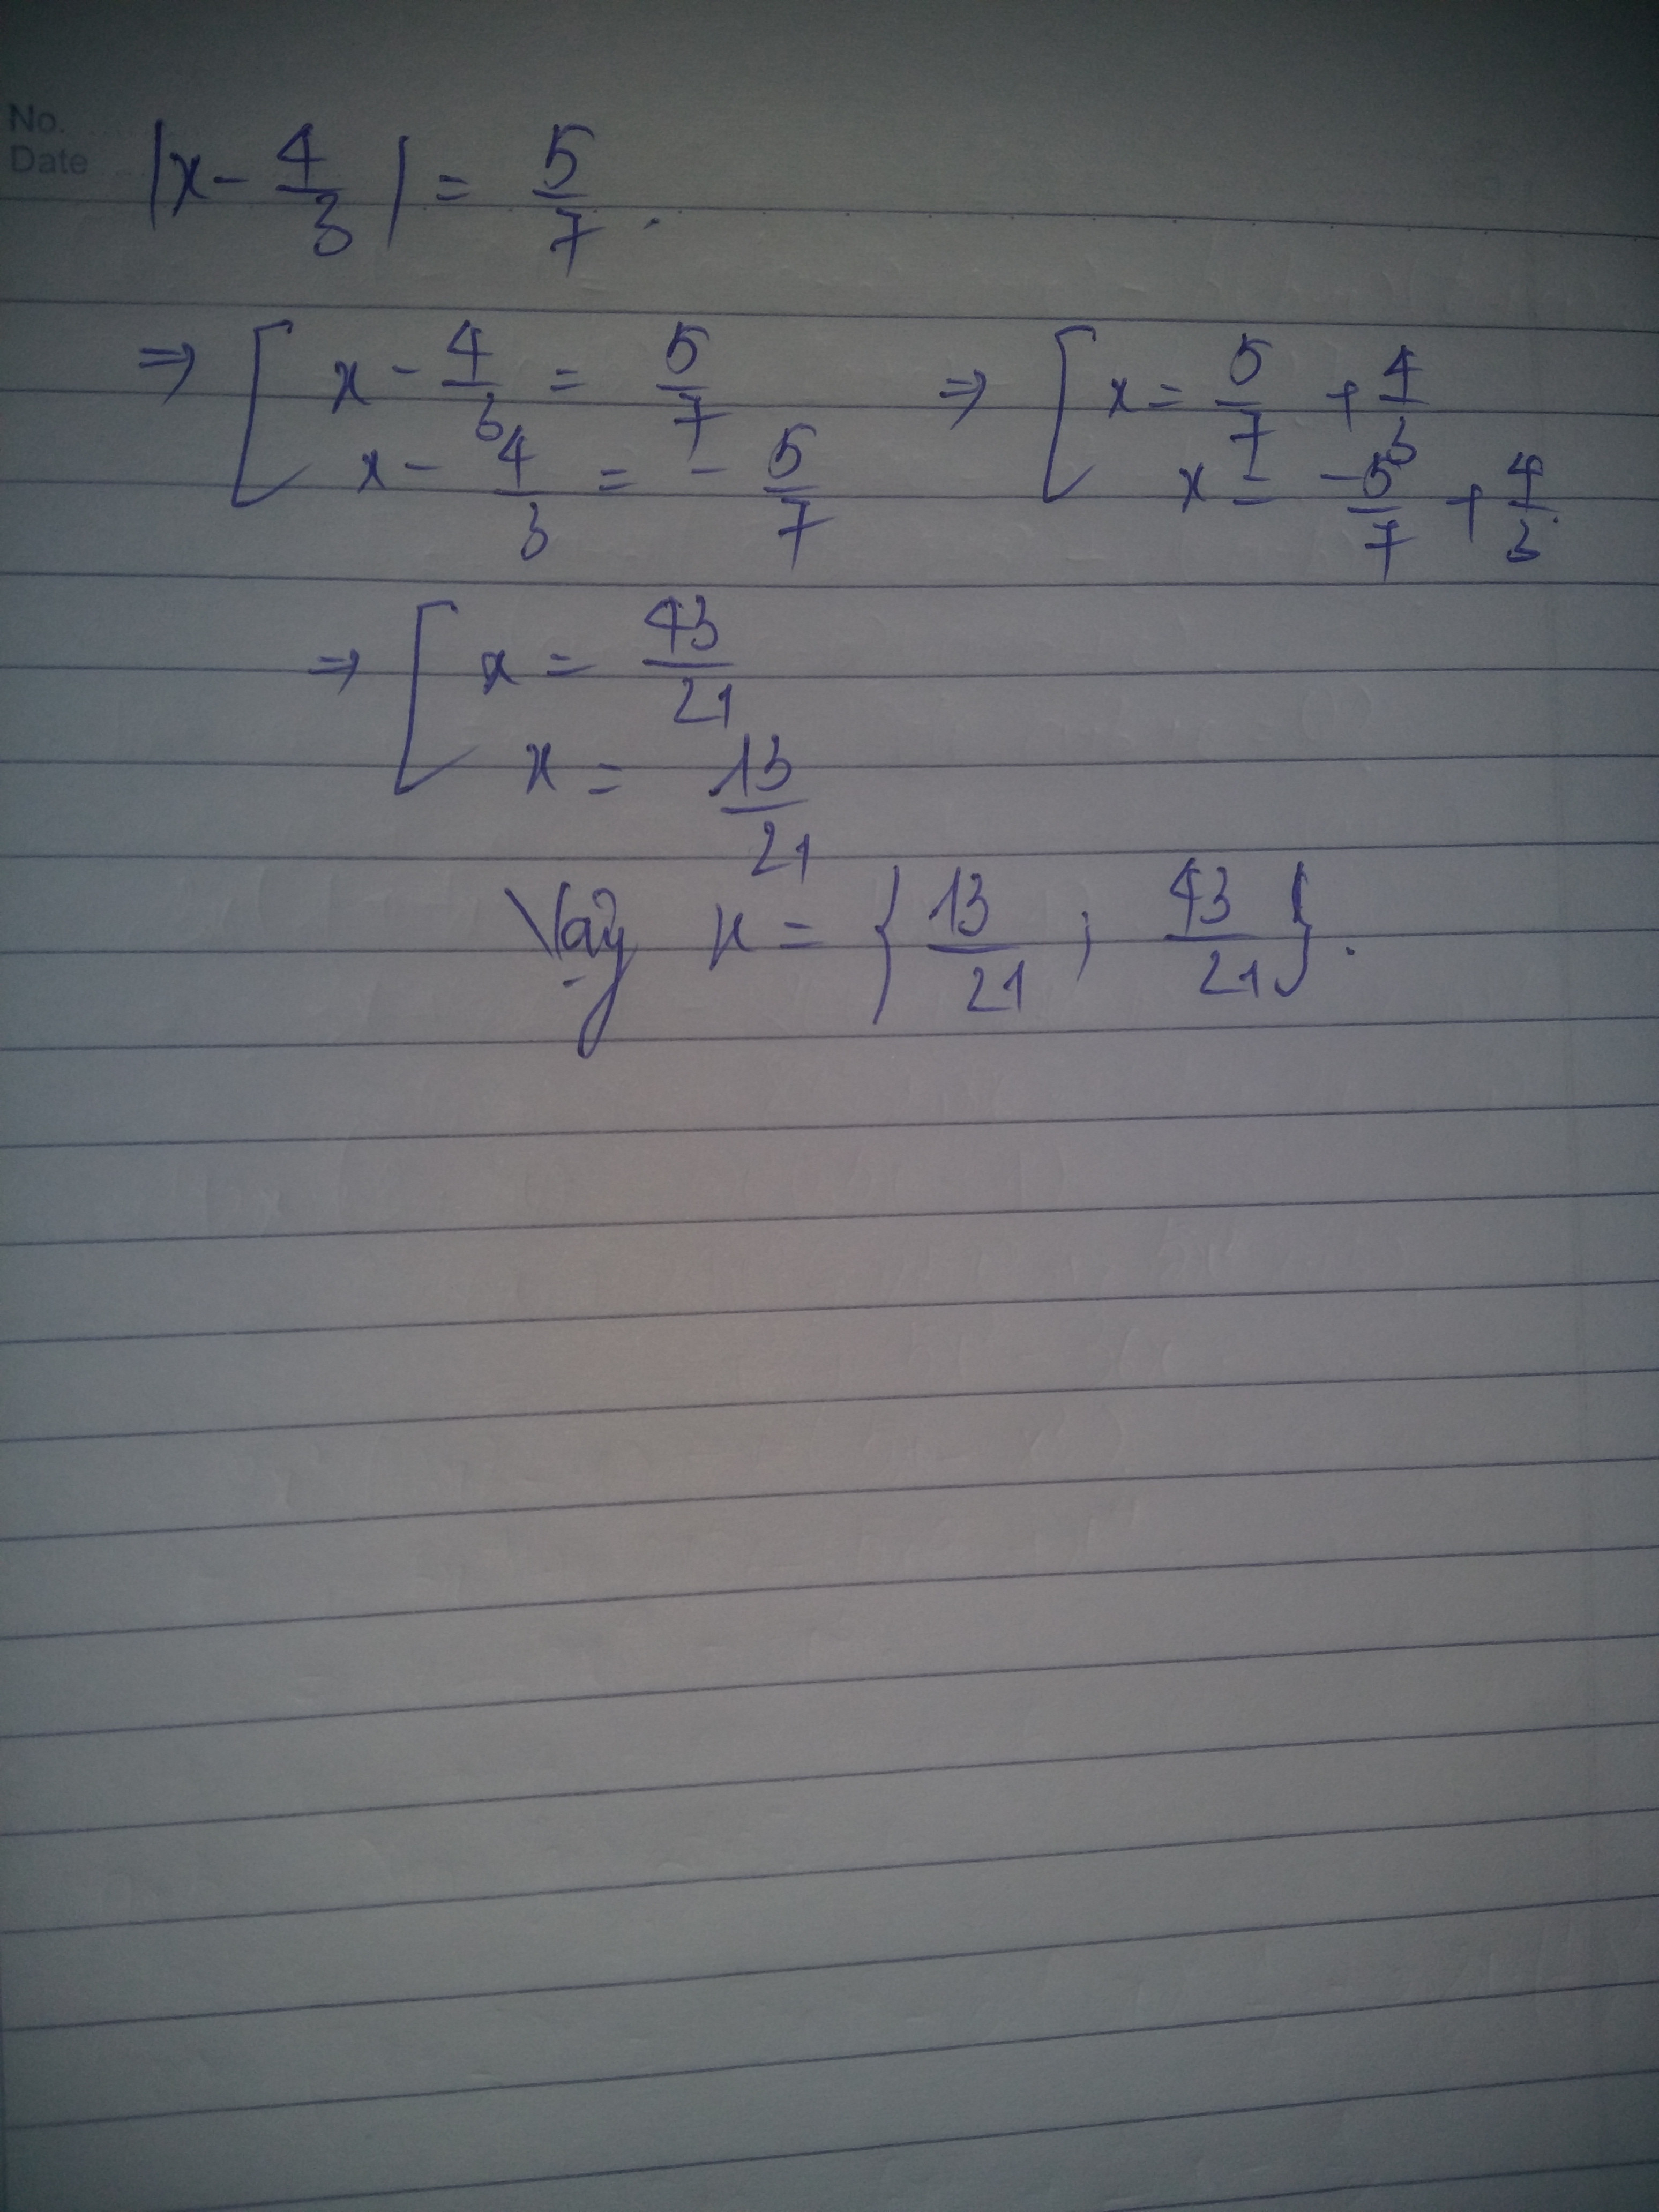 No.
Date
|x - 4/3| = 5/7.
⇒ [ x - 4/3 = 5/7 ⇒ [ x = 5/7 + 4/3
x - 4/3 = - 5/7 x = -5/7 + 4/3.
⇒ [ x = 43/21
x = 13/21
Vậy x = { 13/21 ; 43/21 }.